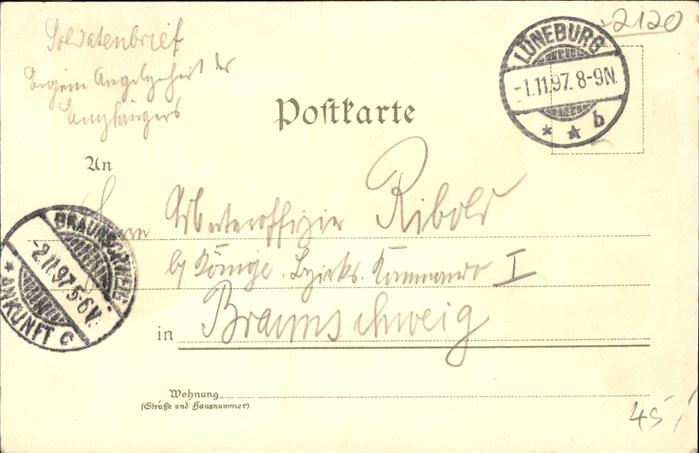 Soldatenbrief
Eigene Angelegenheit des
Empfängers
2120
LÜNEBURG
-1.11.97. 8-9N.
* * b
Postkarte
An
Herrn Unteroffizier Ribold
b/ Königl. Bezirks. Kommando I
in Braunschweig
BRAUNSCHWEIG.
-2.11.97.5-6V.
* ANKUNFT C
Wohnung
(Straße und Hausnummer)
45